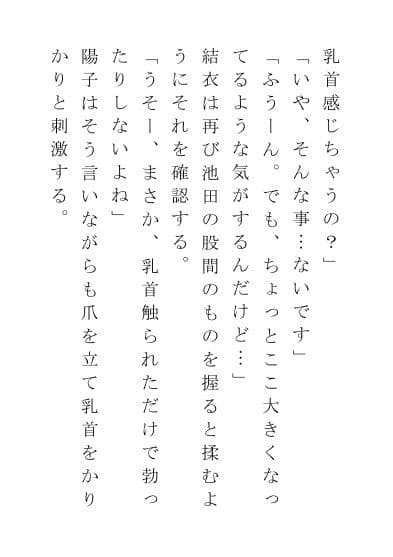 乳首感じちゃうの？」
「いや、そんな事…ないです」
「ふうーん。でも、ちょっとここ大きくなっ
てるような気がするんだけど…」
結衣は再び池田の股間のものを握ると揉むよ
うにそれを確認する。
「うそー、まさか、乳首触られただけで勃っ
たりしないよね」
陽子はそう言いながらも爪を立て乳首をかり
かりと刺激する。